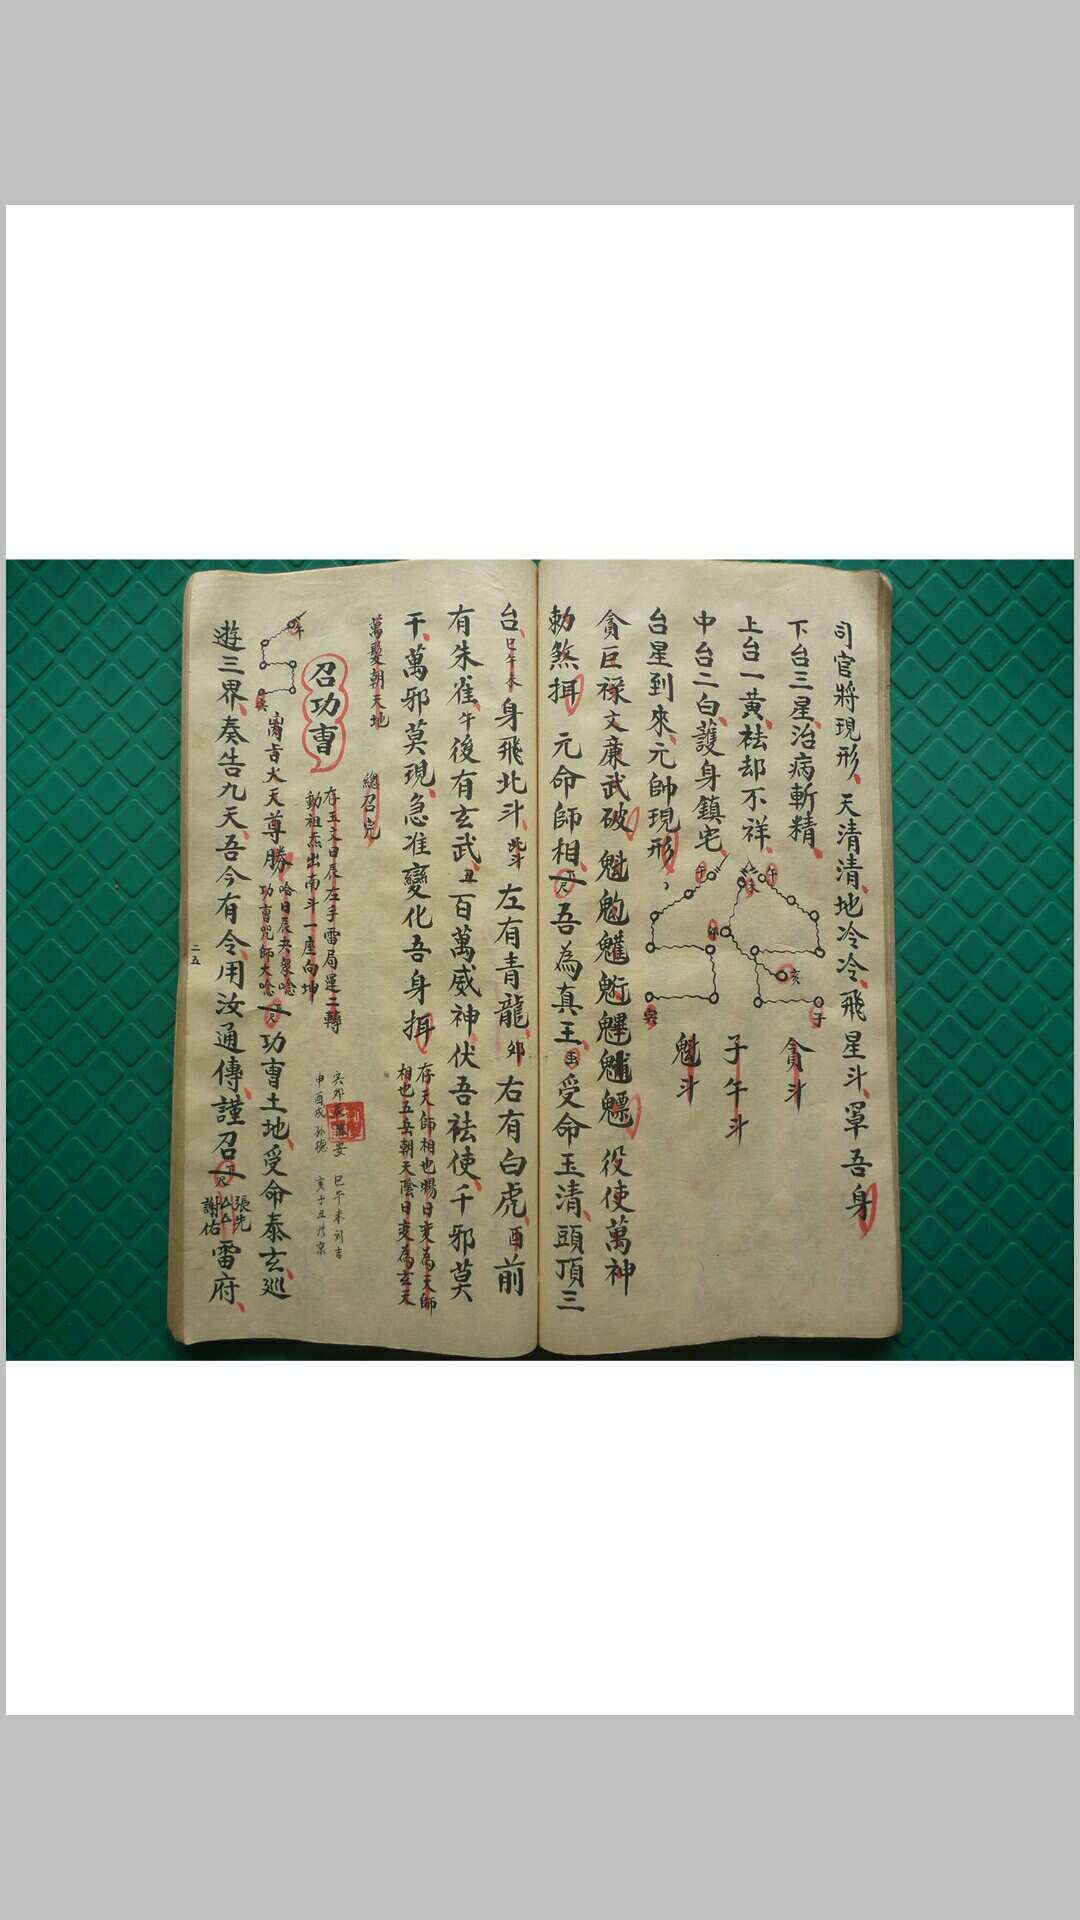 司官將現形天清清地冷冷飛星斗罩吾身
下台三星治病斬精
上台一黃祛却不祥
中台二白護身鎮宅
台星到來元帥現形
午 未 午 卯 亥 子 寅
貪斗
子午斗
魁斗
貪巨祿文廉武破魁𩲃魓役使萬神
勅煞挕元命師相吾為真王受命玉清頭頂三
台巳午未身飛北斗北斗左有青龍卯右有白虎酉前
有朱雀午後有玄武丑百萬威神伏吾祛使千邪莫
干萬邪莫現急准變化吾身挕
存天師相也陽日变為天師
相也五岳朝天陰日变為玄天
萬炁朝天地
總召完
召功曹
存五文日辰左手雷局運二轉
動祖炁出南斗一座向坤
寅卯辰
申酉戌
巳午未
亥子丑
午
寅
大天尊勝
功曹咒師大唸
功曹土地受命泰玄巡
遊三界奏告九天吾今有令用汝通傳謹召
張先
謝佑
雷府
二五